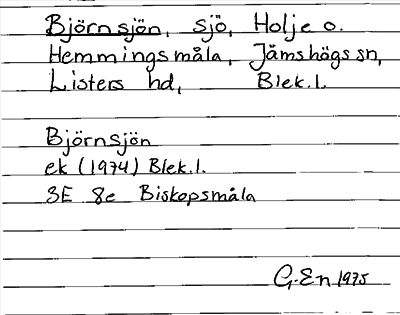 Björnsjön, sjö, Holje o.
Hemmingsmåla, Jämshögs sn,
Listers hd, Blek.l.
Björnsjön
ek (1974) Blek.l.
3E 8e Biskopsmåla
G. En 1975